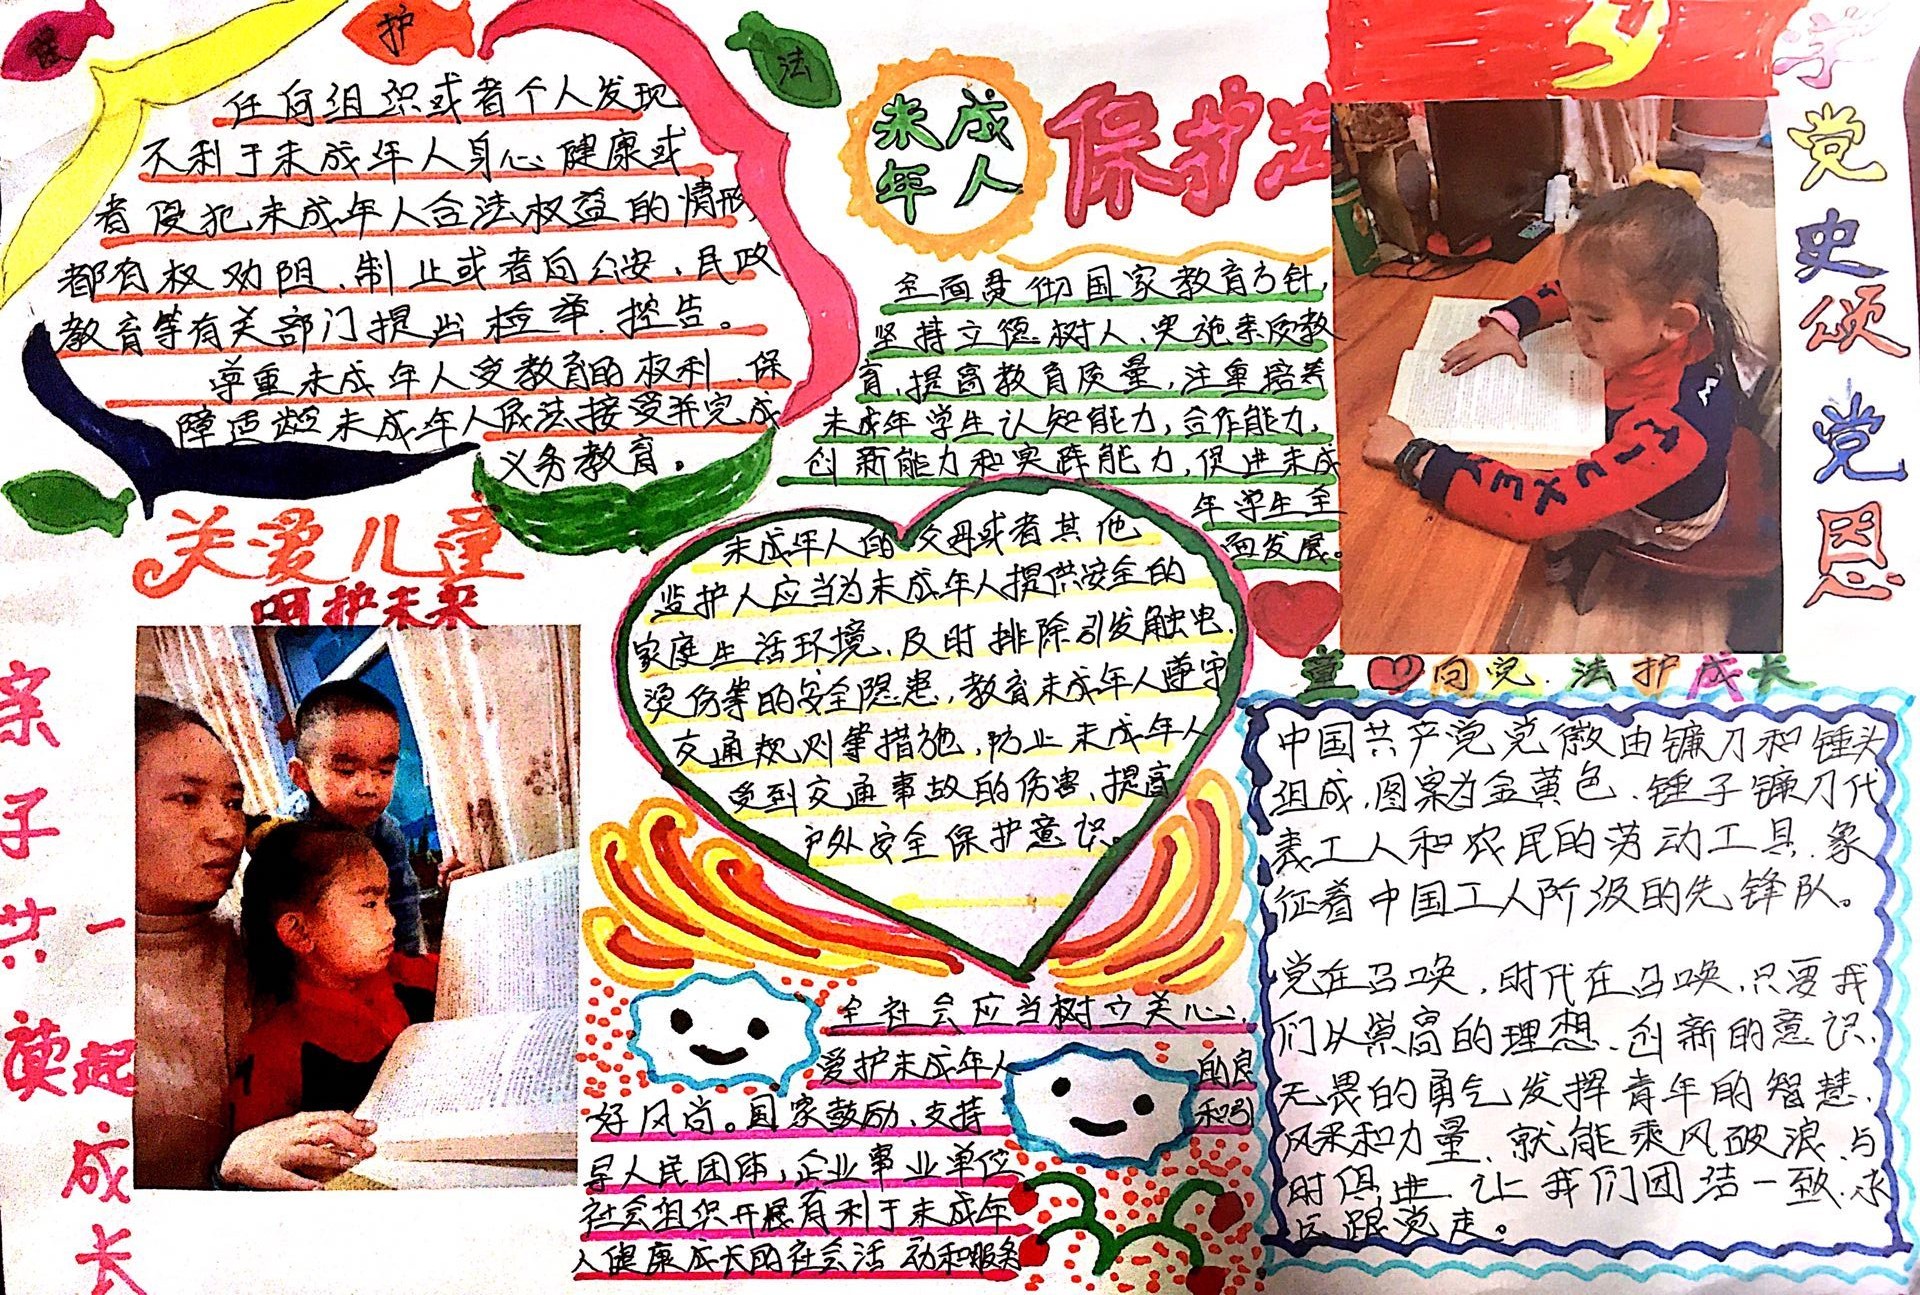 保
护
法
任何组织或者个人发现
不利于未成年人身心健康或
者侵犯未成年人合法权益的情形
都有权劝阻、制止或者向公安、民政
教育等有关部门提出检举、控告。
尊重未成年人受教育的权利、保
障适龄未成年人依法接受并完成
义务教育。
关爱儿童
呵护未来
亲子共读
一起成长
未成
年人
保护法
全面贯彻国家教育方针,
坚持立德树人、实施素质教
育,提高教育质量,注重培养
未成年学生认知能力,合作能力,
创新能力和实践能力,促进未成
年学生全
面发展。
未成年人的父母或者其他
监护人应当为未成年人提供安全的
家庭生活环境、及时排除引发触电、
烫伤等的安全隐患,教育未成年人遵守
交通规则等措施,防止未成年人
受到交通事故的伤害、提高
户外安全保护意识。
全社会应当树立关心、
爱护未成年人的良
好风尚。国家鼓励、支持和引
导人民团体,企业事业单位
社会组织开展有利于未成年
人健康成长的社会活动和服务
学党史颂党恩
ΤΙΕΧΕΥ
童 向党.法护成长
中国共产党党徽由镰刀和锤头
组成,图案为金黄色、锤子镰刀代
表工人和农民的劳动工具、象
征着中国工人阶级的先锋队。
党在召唤,时代在召唤,只要我
们从崇高的理想、创新的意识、
无畏的勇气发挥青年的智慧、
风采和力量、就能乘风破浪、与
时俱进、让我们团结一致.永
远跟党走。